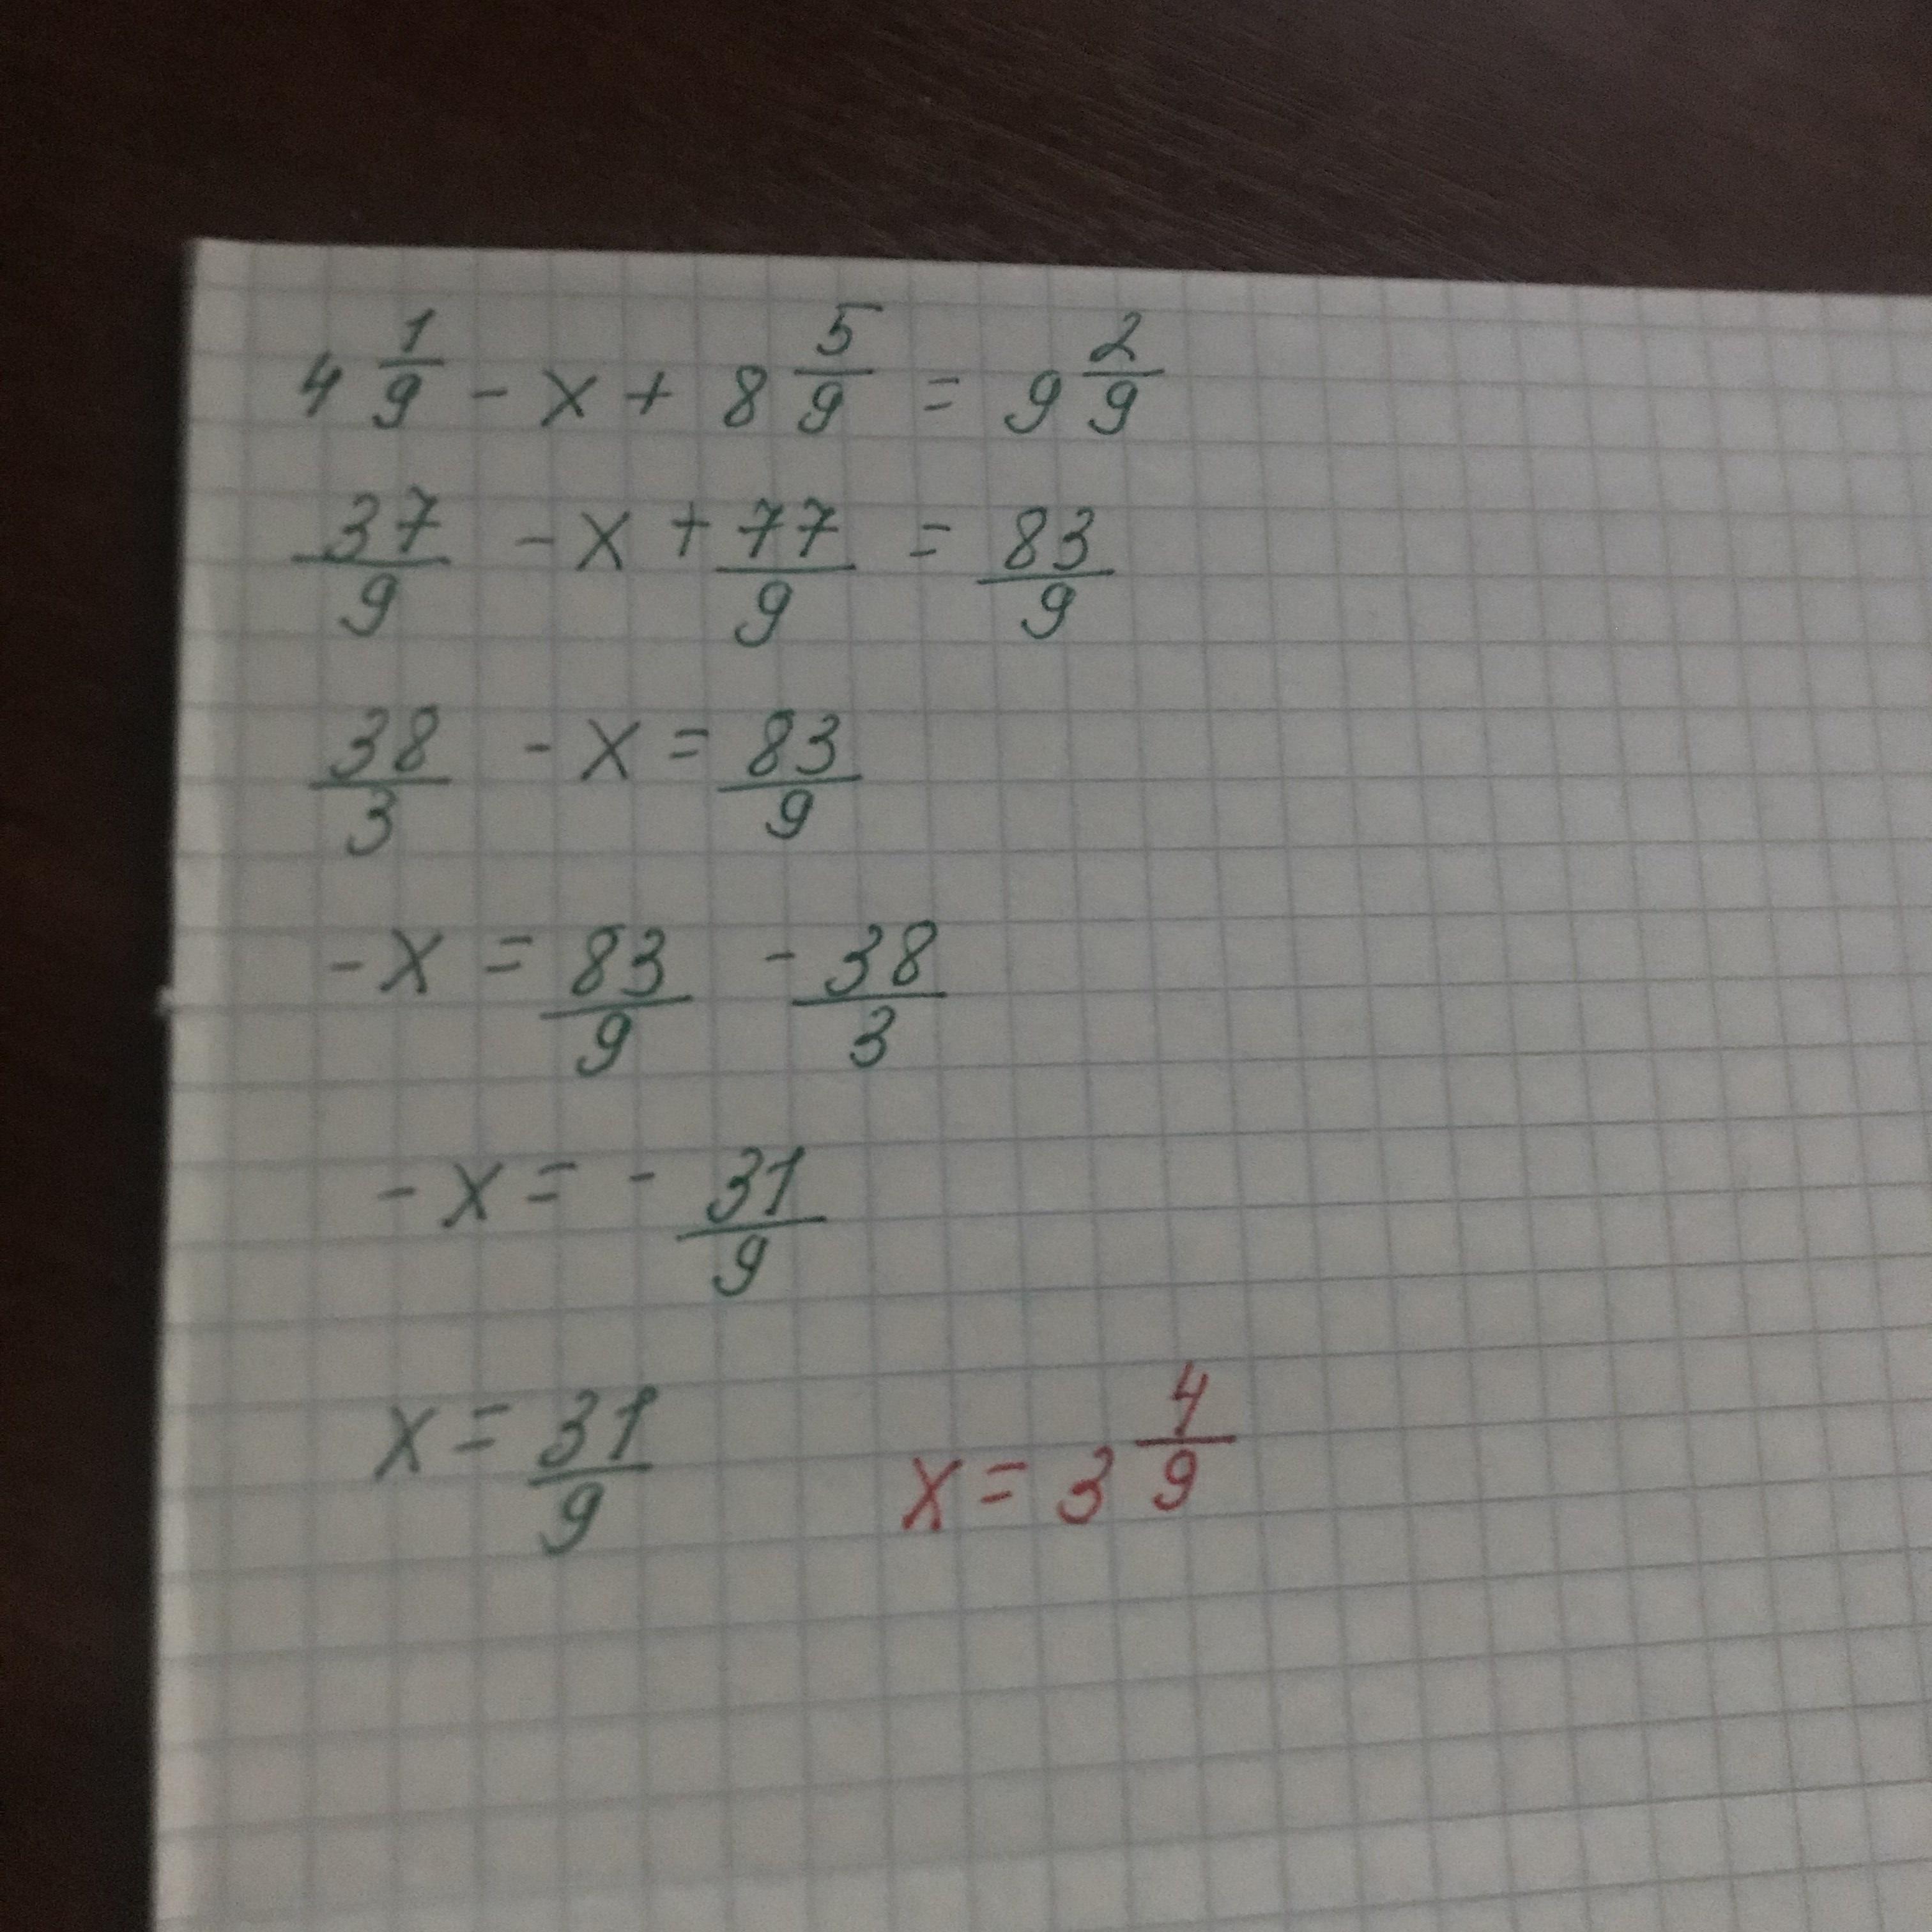 4 1/9 - x + 8 5/9 = 9 2/9
37/9 - x + 77/9 = 83/9
38/3 - x = 83/9
- x = 83/9 - 38/3
- x = - 31/9
x = 31/9 x = 3 4/9